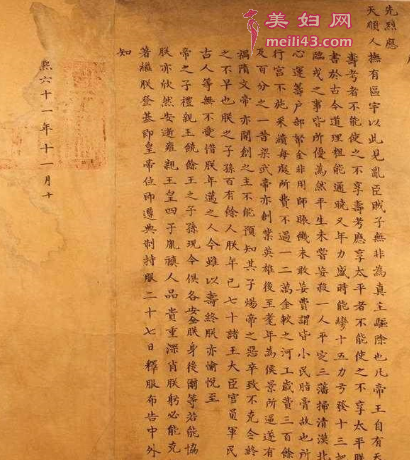 先烈應
天順人撫有區宇以此見亂臣賊子無非為真主驅除也凡帝王自有天
壽考者不能使之不享壽考應享太平者不能使之不享太平朕
書於古今道理粗能通曉又年力盛時能彎十五力弓發十三把
臨戎之事皆所優為然平生未嘗妄殺一人平定三藩掃清漠北
心運籌戶部帑金非用師賑饑未敢妄費謂皆小民脂膏故也所
行宮不施采繢每處所費不過一二萬金較之河工歲費三百餘
及百分之一昔梁武帝亦創業英雄後至耄年為侯景所逼遂有
禍隋文帝亦開創之主不能預知其子煬帝之惡卒致不克令終
之不早也朕之子孫百有餘人朕年已七十諸王大臣官員軍民
古人等無不愛惜朕年邁之人今雖以壽終朕亦愉悅至
帝之子禮親王饒餘王之子孫現今俱各安全朕身後爾等若能協
朕亦欣然安逝雍親王皇四子胤禛人品貴重深肖朕躬必能克
著繼朕登基即皇帝位即遵典制持服二十七日釋服布告中外
知
熙六十一年十一月十
美妇网
meili43.com